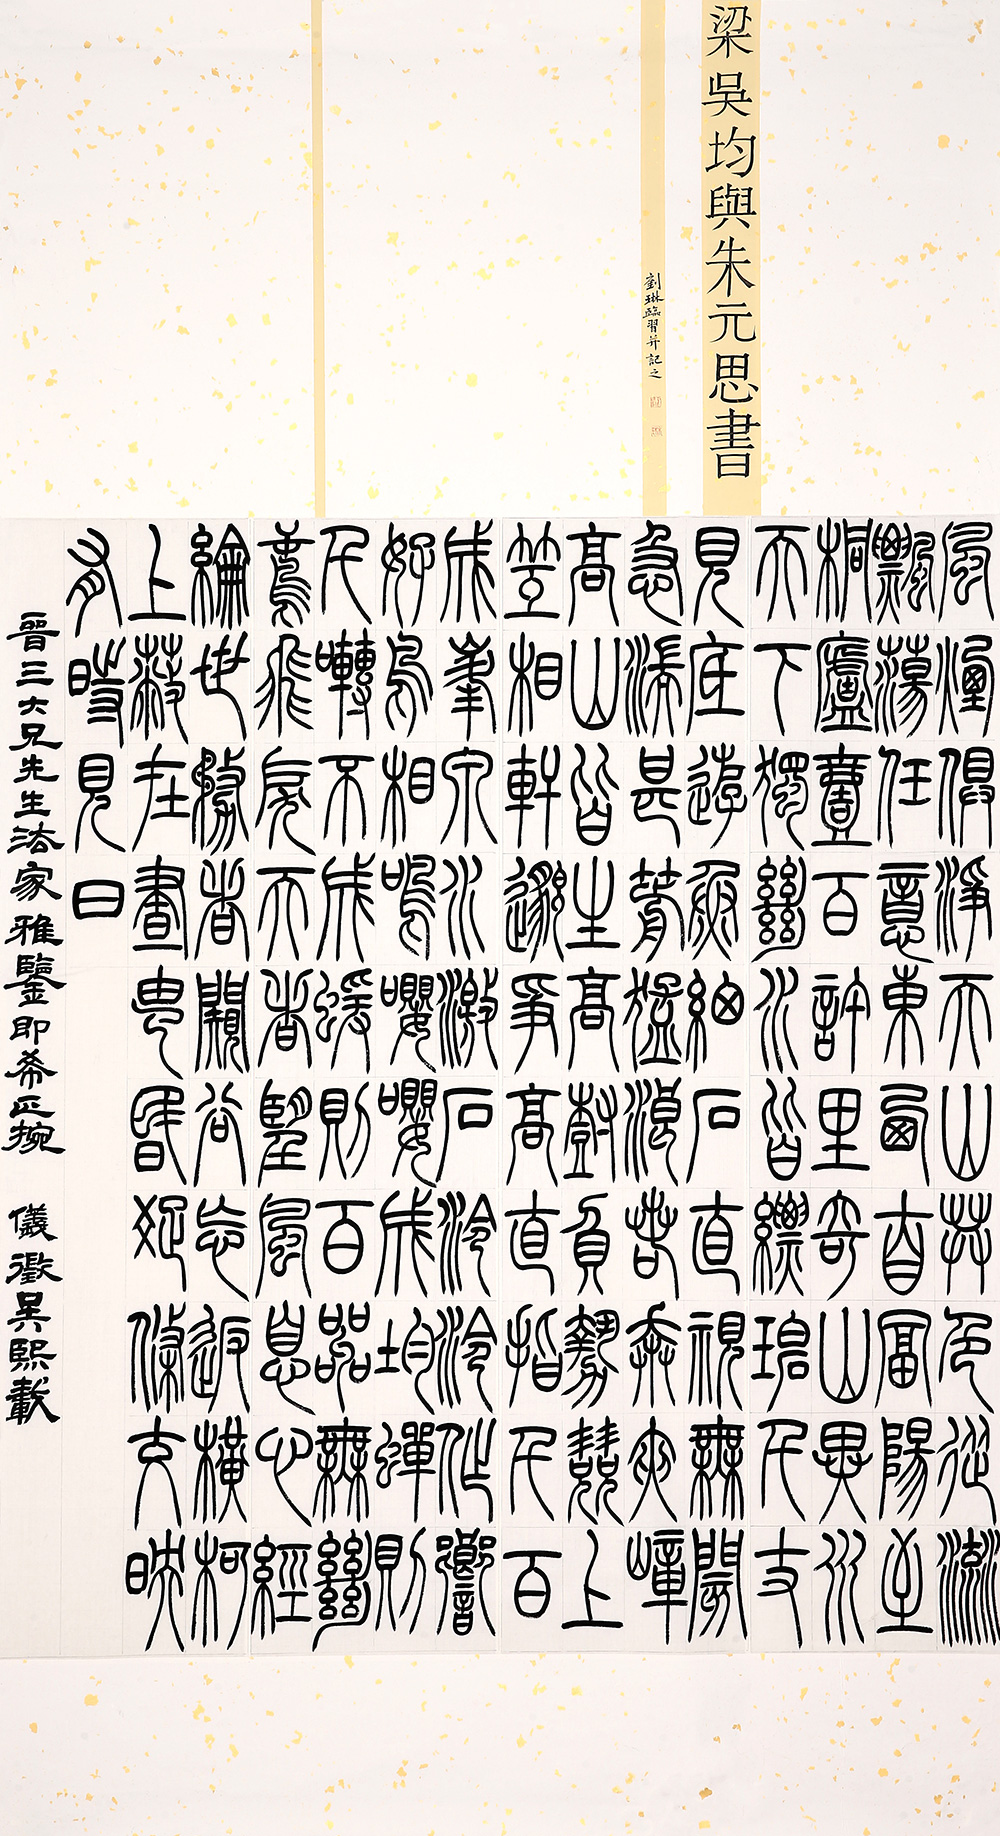 梁吳均與朱元思書
劉琳臨習并記之
風煙俱淨天山共色從流
飄蕩任意東西自富陽至
桐廬壹百許里奇山異水
天下獨絕水皆縹碧千丈
見底遊魚細石直視無閡
急湍甚箭猛浪若奔夾嶂
高山皆生高樹負勢競上
互相軒邈爭高直指千百
成峯泉水激石泠泠作響
好鳥相鳴嚶嚶成均蟬則
千囀不成蝯則百嘂無絕
鳶飛戾天者望風息心經
綸世務者闚谷忘返橫柯
上蔽在晝昏疏條交映
有時見日
晉三大兄先生法家雅鑒即希正捥 儀徵吳熙載